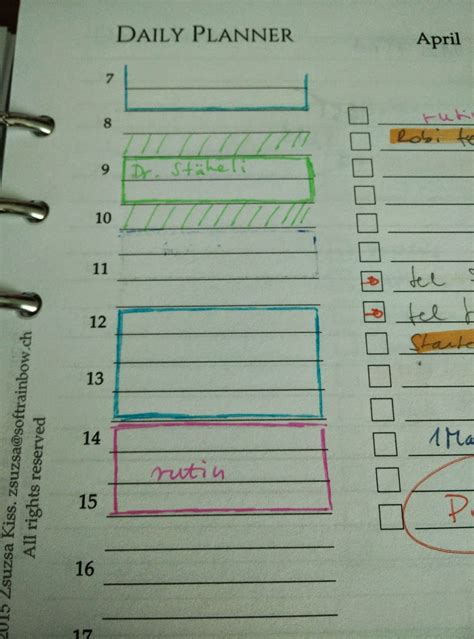 DAILY PLANNER
April
7
8
9 Dr. Stäheli
10
11
12
13
14
rutin
15
16
17
Robi
tel
tel
1 Ma
2015 Zsuzsa Kiss. zsuzsa@softrainbow.ch
All rights reserved